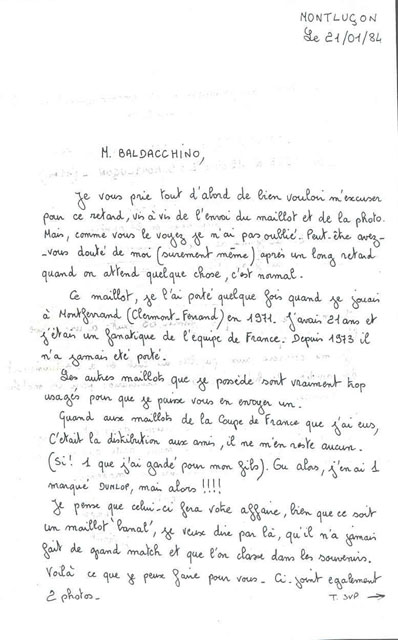 MONTLUÇON
Le 21/01/84
M. BALDACCHINO,
Je vous prie tout d'abord de bien vouloir m'excuser
pour ce retard, vis à vis de l'envoi du maillot et de la photo.
Mais, comme vous le voyez je n'ai pas oublié. Peut-être avez-
-vous douté de moi (surement même) après un long retard
quand on attend quelque chose, c'est normal.
Ce maillot, je l'ai porté quelque fois quand je jouais
à Montferrand (Clermont-Ferrand) en 1971. J'avais 21 ans et
j'étais un fanatique de l'équipe de France. Depuis 1973 il
n'a jamais été porté.
Les autres maillots que je possède sont vraiment trop
usagés pour que je puisse vous en envoyer un.
Quand aux maillots de la Coupe de France que j'ai eus,
C'était la distribution aux amis, il ne m'en reste aucun.
(Si! 1 que j'ai gardé pour mon fils). Ou alors, j'en ai 1
marqué DUNLOP, mais alors !!!!
Je pense que celui-ci fera votre affaire, bien que ce soit
un maillot "banal", je veux dire par là, qu'il n'a jamais
fait de grand match et que l'on classe dans les souvenirs.
Voilà ce que je peux faire pour vous - Ci-joint également
2 photos -
T. SVP →